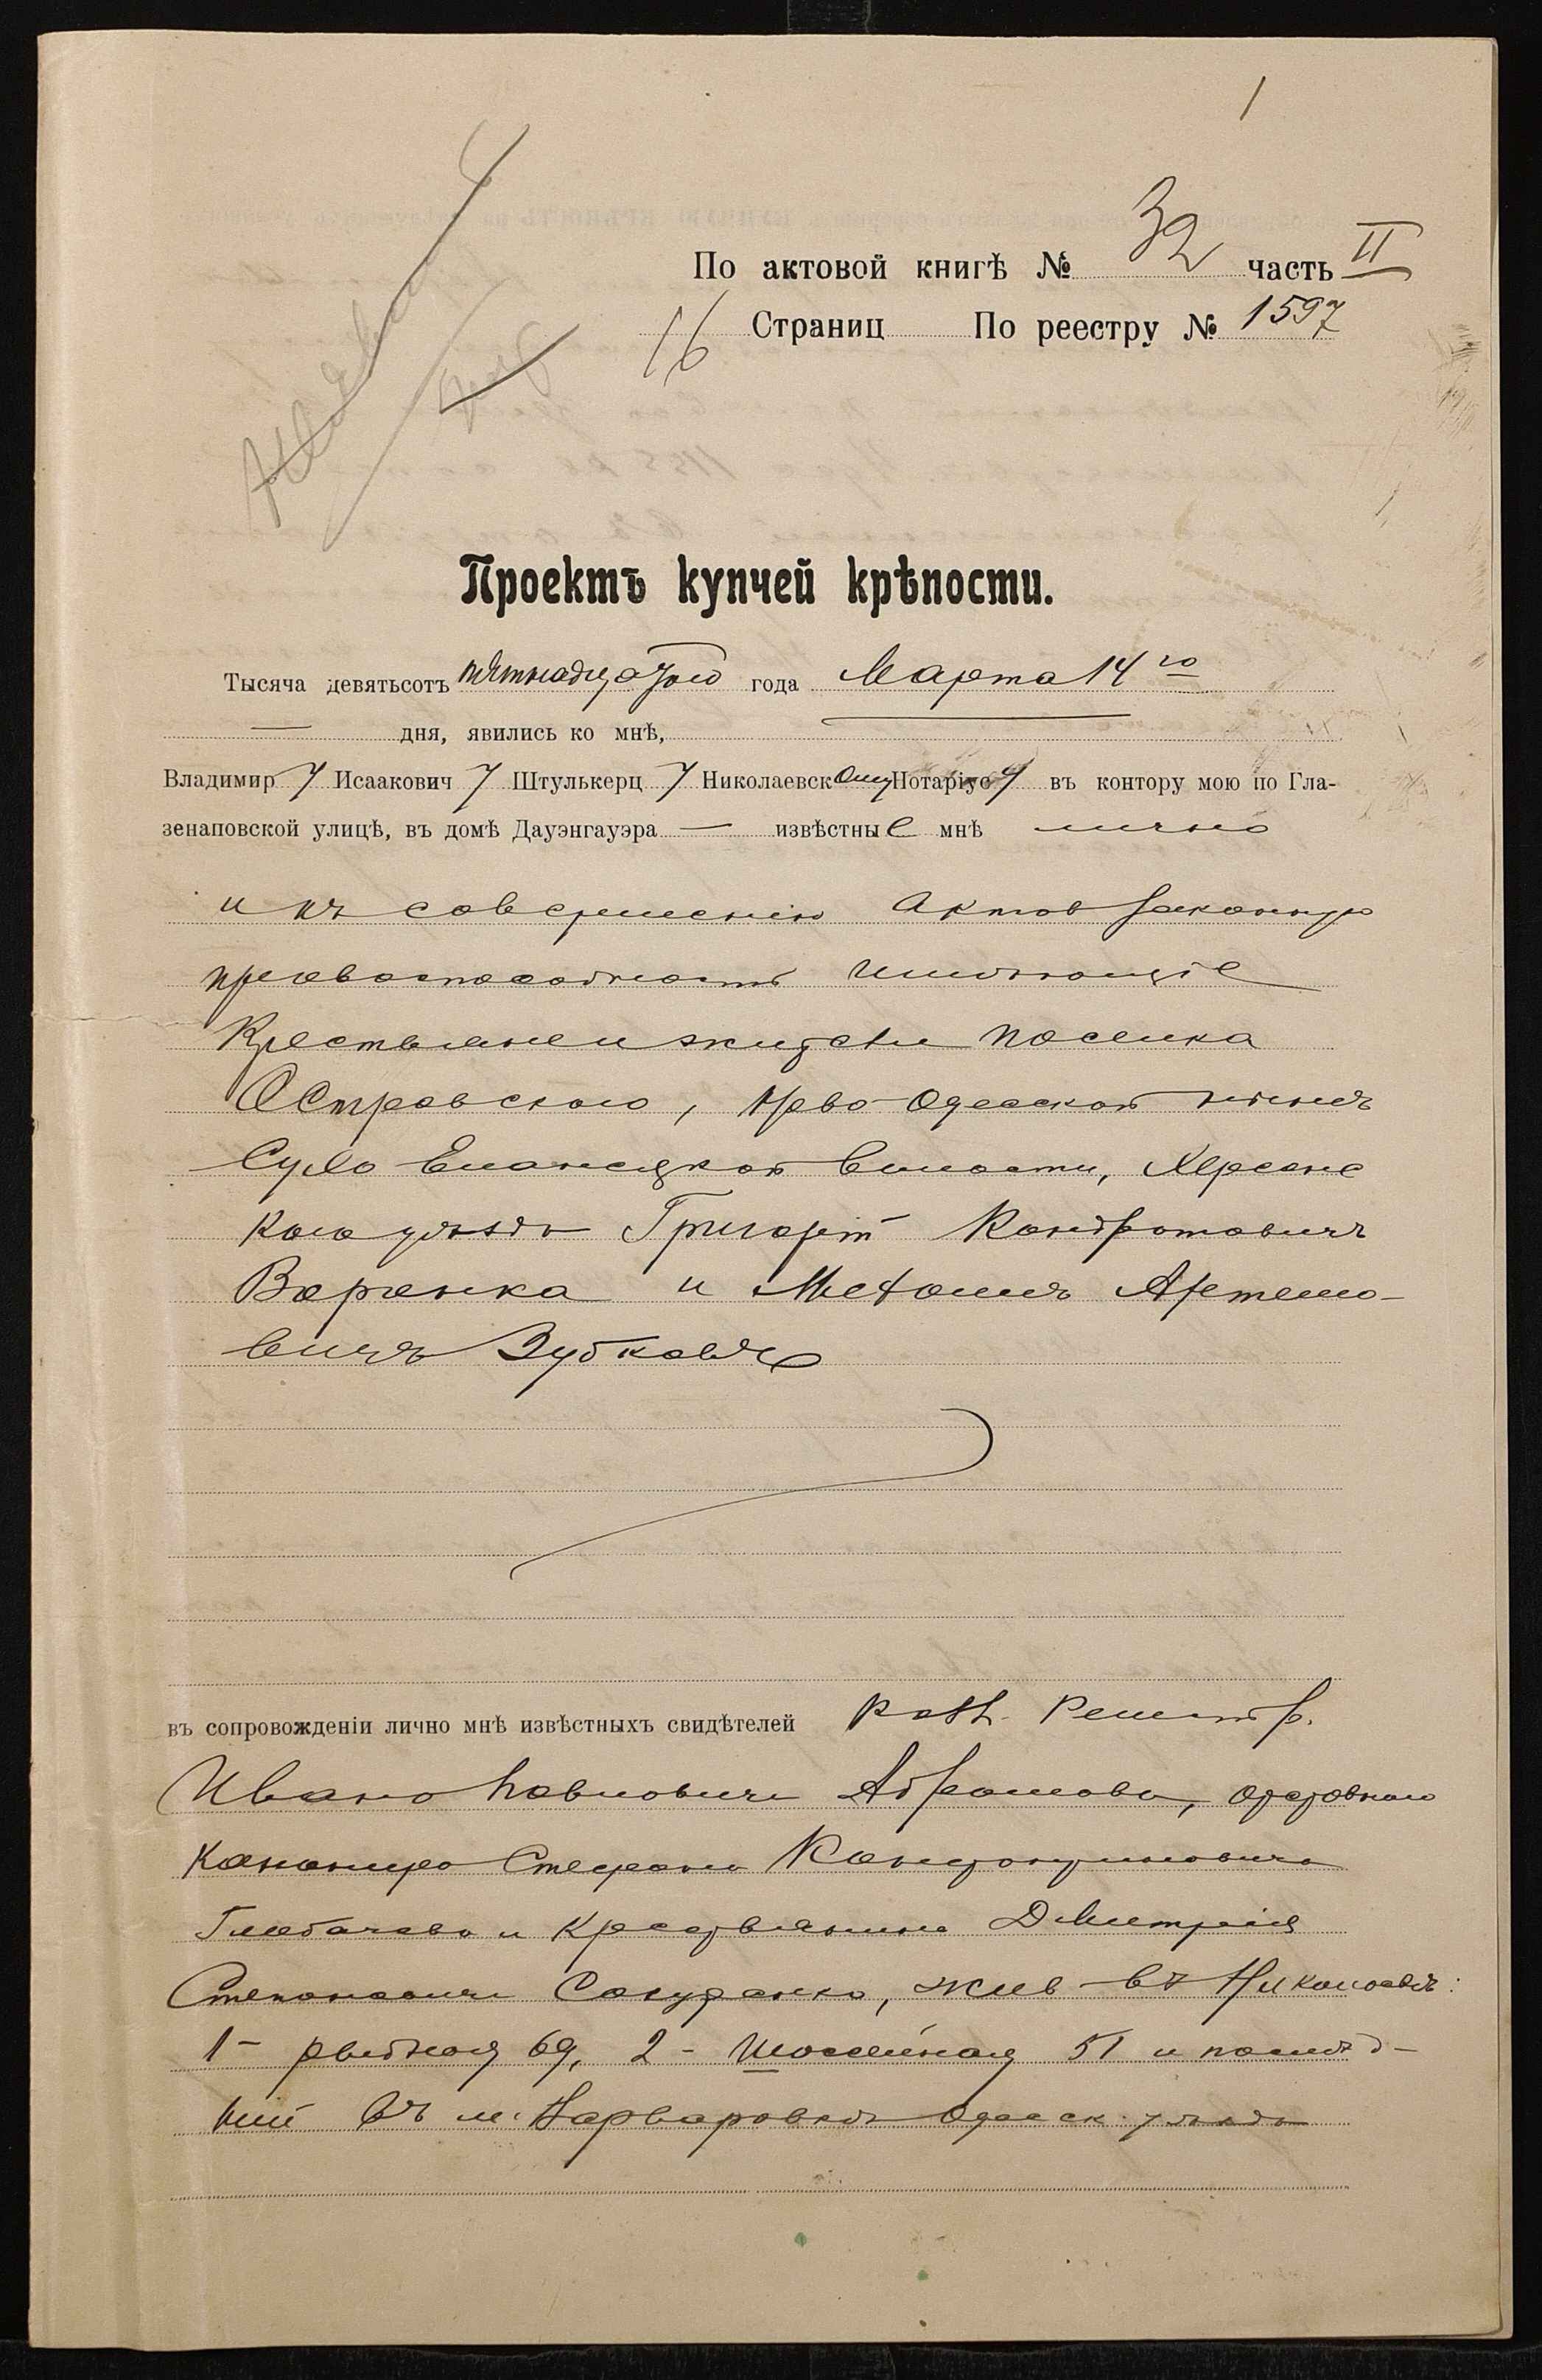 1
По актовой книгѣ № 32 часть II
16 Страниц По реестру № 1597
Проектъ купчей крѣпости.
Тысяча девятьсотъ пятнадцатого года Марта 14го
— дня, явились ко мнѣ,
Владимиру Исааковичу Штулькерцу Николаевскому Нотаріусу въ контору мою по Гла-
зенаповской улицѣ, въ домѣ Дауэнгауэра — извѣстные мнѣ лично
и къ совершенію актов законную
правоспособность имѣющіе
Крестьяне и жители поселка
Островского, Ново-Одесской тожъ
Сухо Еланецкой волости, Херсонс
кого уѣзда Григорій Кондратовичъ
Варенка и Артемо-
вичъ Зубковъ
въ сопровожденіи лично мнѣ извѣстныхъ свидѣтелей Регистр.
Ивана Павловича Абрамова, отставного
канонира Стефана
и Крестьянина Дмитрія
Степановича жив въ Николаевѣ:
1- рыбная 69, 2- Шоссейная 51 и послѣд-
ній въ м. Варваровкѣ Одесск. уѣзда